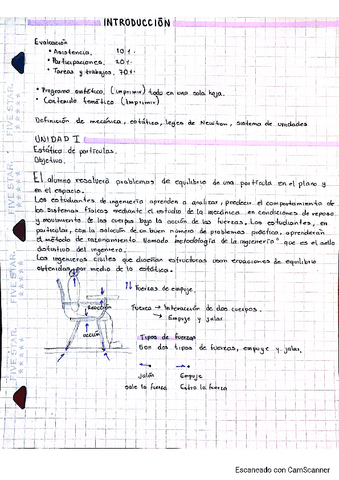 INTRODUCCIÓN
Evaluación
• Asistencia. 10%.
• Participaciones. 20%.
• Tareas y trabajos. 70%.
• Programa sintético. (Imprimir) todo en una sola hoja.
• Contenido temático (Imprimir)
Definición de mecánica, estática, leyes de Newton, sistema de unidades
UNIDAD I
Estática de partículas.
Objetivo.
El alumno resolverá problemas de equilibrio de una partícula en el plano y
en el espacio.
Los estudiantes de ingeniería aprenden a analizar, predecir el comportamiento de
los sistemas físicos mediante el estudio de la mecánica en condiciones de reposo
y movimiento de los cuerpos bajo la acción de las fuerzas. Los estudiantes, en
particular, con la solución de un buen número de problemas prácticos, aprenderán
el método de razonamiento llamado metodología de la ingeniería" que es el sello
distintivo del ingeniero.
Los ingenieros civiles que diseñan estructuras usan ecuaciones de equilibrio
obtenidas por medio de la estática.
Fuerzas de empuje.
Fuerza → Interacción de dos cuerpos.
→ Empuje y jalar.
REACCIÓN
ACCIÓN
Tipos de fuerzas
Son dos tipos de fuerzas, empuje y jalar.
Jalón Empuje
Sale la fuerza Entra la fuerza
FIVE STAR.
FIVE STAR.
FIVE STAR.
FIVE STAR.
Escaneado con CamScanner